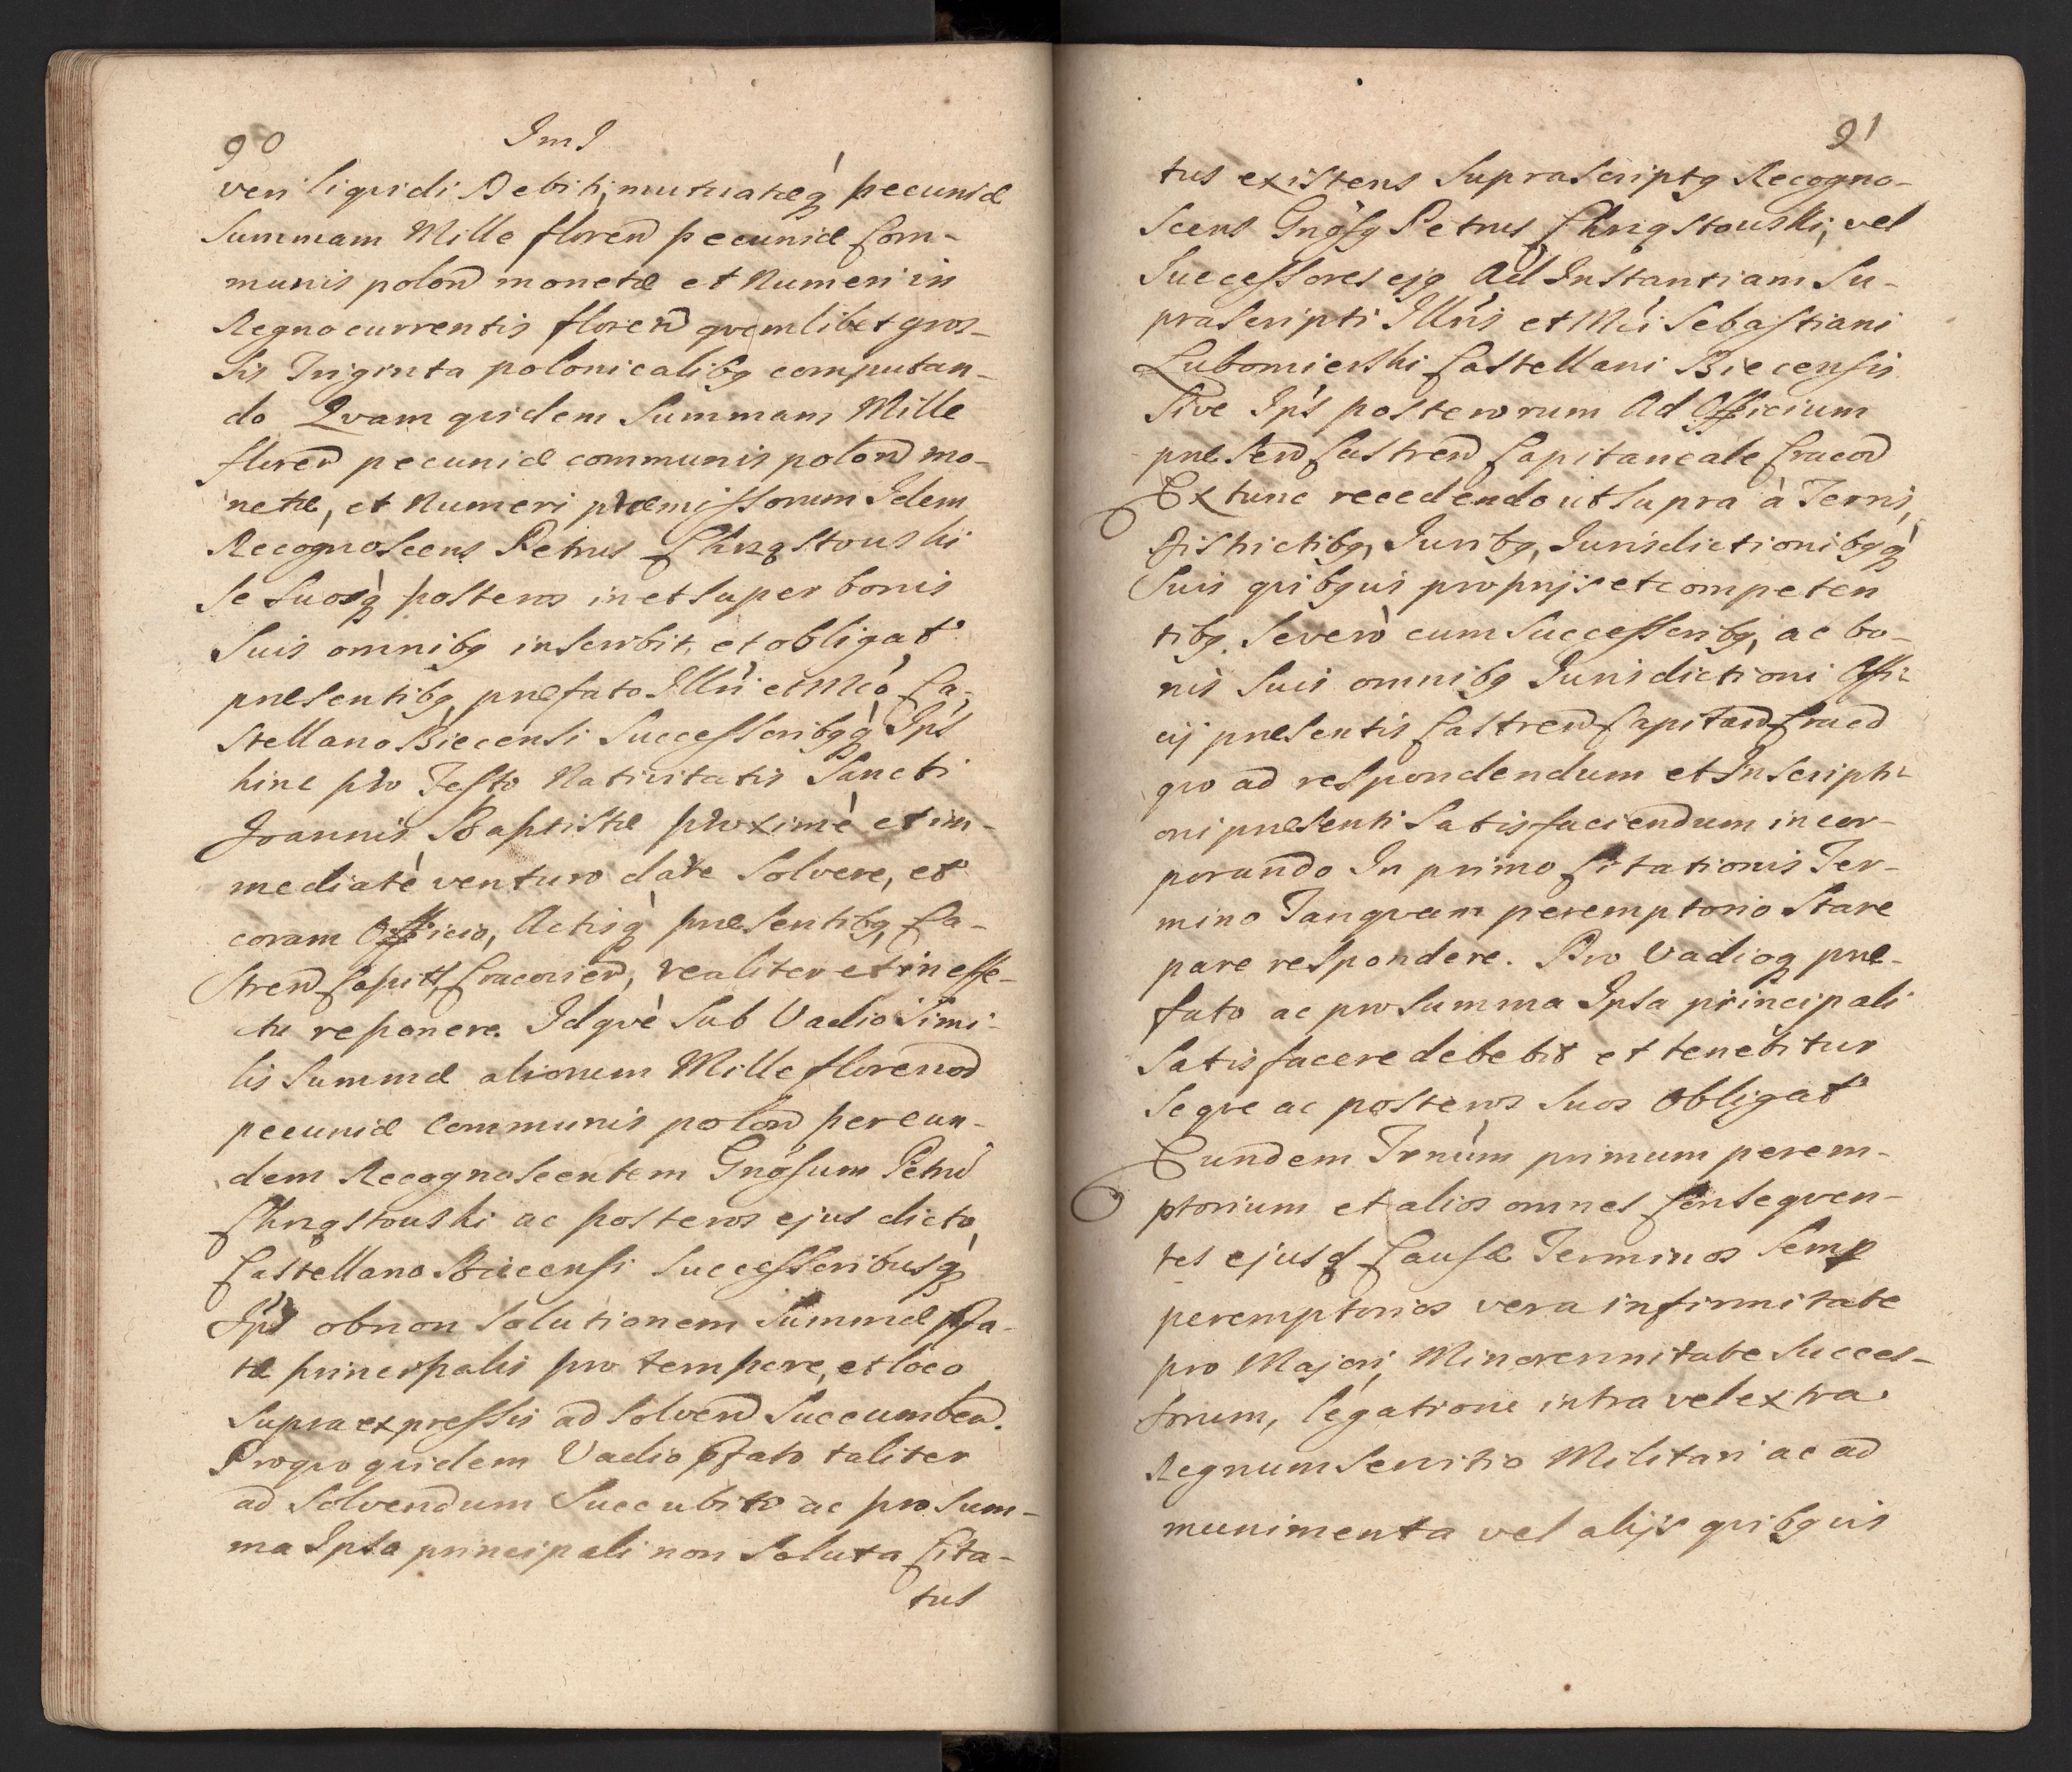 90 ImJ
veri liqvidi Debiti, mutuatæq́ pecuniæ
Summam Mille floreñ pecuniæ Com-
munis poloñ monetæ et Numeri in
Regno currentis floreñ qvemlibet gros-
sis Triginta polonicalibq computan-
do Qvam qvidem Summam Mille
floreñ pecuniæ communis poloñ mo-
netæ, et Numeri præmissorum Idem
Recognoscens Petrus Chrzqstouski
Se Suosq́ posteros in et super bonis
Suis omnibq inscribit, et obligat
præsentibq præfato Illri et Mco Ca-
stellano Biecensi Successoribqq́ Ips
hinc pro Festo Nativitatis Sancti
Joannis Baptistæ proximè et im-
mediatè venturo dare Solvere, et
coram Officio, Actisq́ præsentibq, Ca-
streñ Capitt, Cracovieñ, realiter et in effe-
ctu reponere. Idqvè Sub Vadio Simi-
lis Summæ aliorum Mille florenoꝝ
pecuniæ Communis poloñ per eun-
dem Recognoscentem Gnosum Petrũ
Chrzqstouski ac posteros ejus dicto
Castellano Biecensi Successoribusq́
Ips ob non Solutionem Summæ pfa-
tæ principalis pro tempore, et loco
Supra expressis ad Solveñ Succumbeñ.
Pro qvo qvidem Vadio pfato taliter
ad Solvendum Succubito ac pro Sum-
ma Ipsa principali non Soluta Cita-
tus
91
tus existens Suprascriptq Recogno-
scens Gnosq Petrus Chrzqstouski, vel
Successores ejq Ad Instantiam Su-
prascripti Illris et Mci Sebastiani
Lubomierski Castellani Biecensis
Sive Ips posterorum Ad Officium
præseñ Castreñ Capitaneale Cracoñ
Ex tunc recedendo ut Supra à Terris,
Districtibq, Juribq, Jurisdictionibqq́
Suis qvibqvis proprijs et competen
tibq. Se verò cum Successoribq, ac bo-
nis Suis omnibq Jurisdictioni Offi-
cij præsentis Castreñ Capitañ Cracõ
qvo ad respondendum et Inscripti-
oni præsenti Satisfaciendum incor-
porando In primo Citationis Ter-
mino Tanqvam peremptorio Stare
pare respondere. Pro Vadioq præ-
fato ac pro Summa Ipsa principali
Satisfacere debebit et tenebitur
Seqve ac posteros Suos Obligat
Eundem Trnum primum perem-
ptorium et alios omnes Conseqven-
tes ejusq Causæ Terminos Semp
peremptorios vera infirmitate
pro Majori, Minorennitate Succes-
sorum, legatione intra vel extra
Regnum Servitio Militari ac ad
munimenta vel alijs qvibqvis